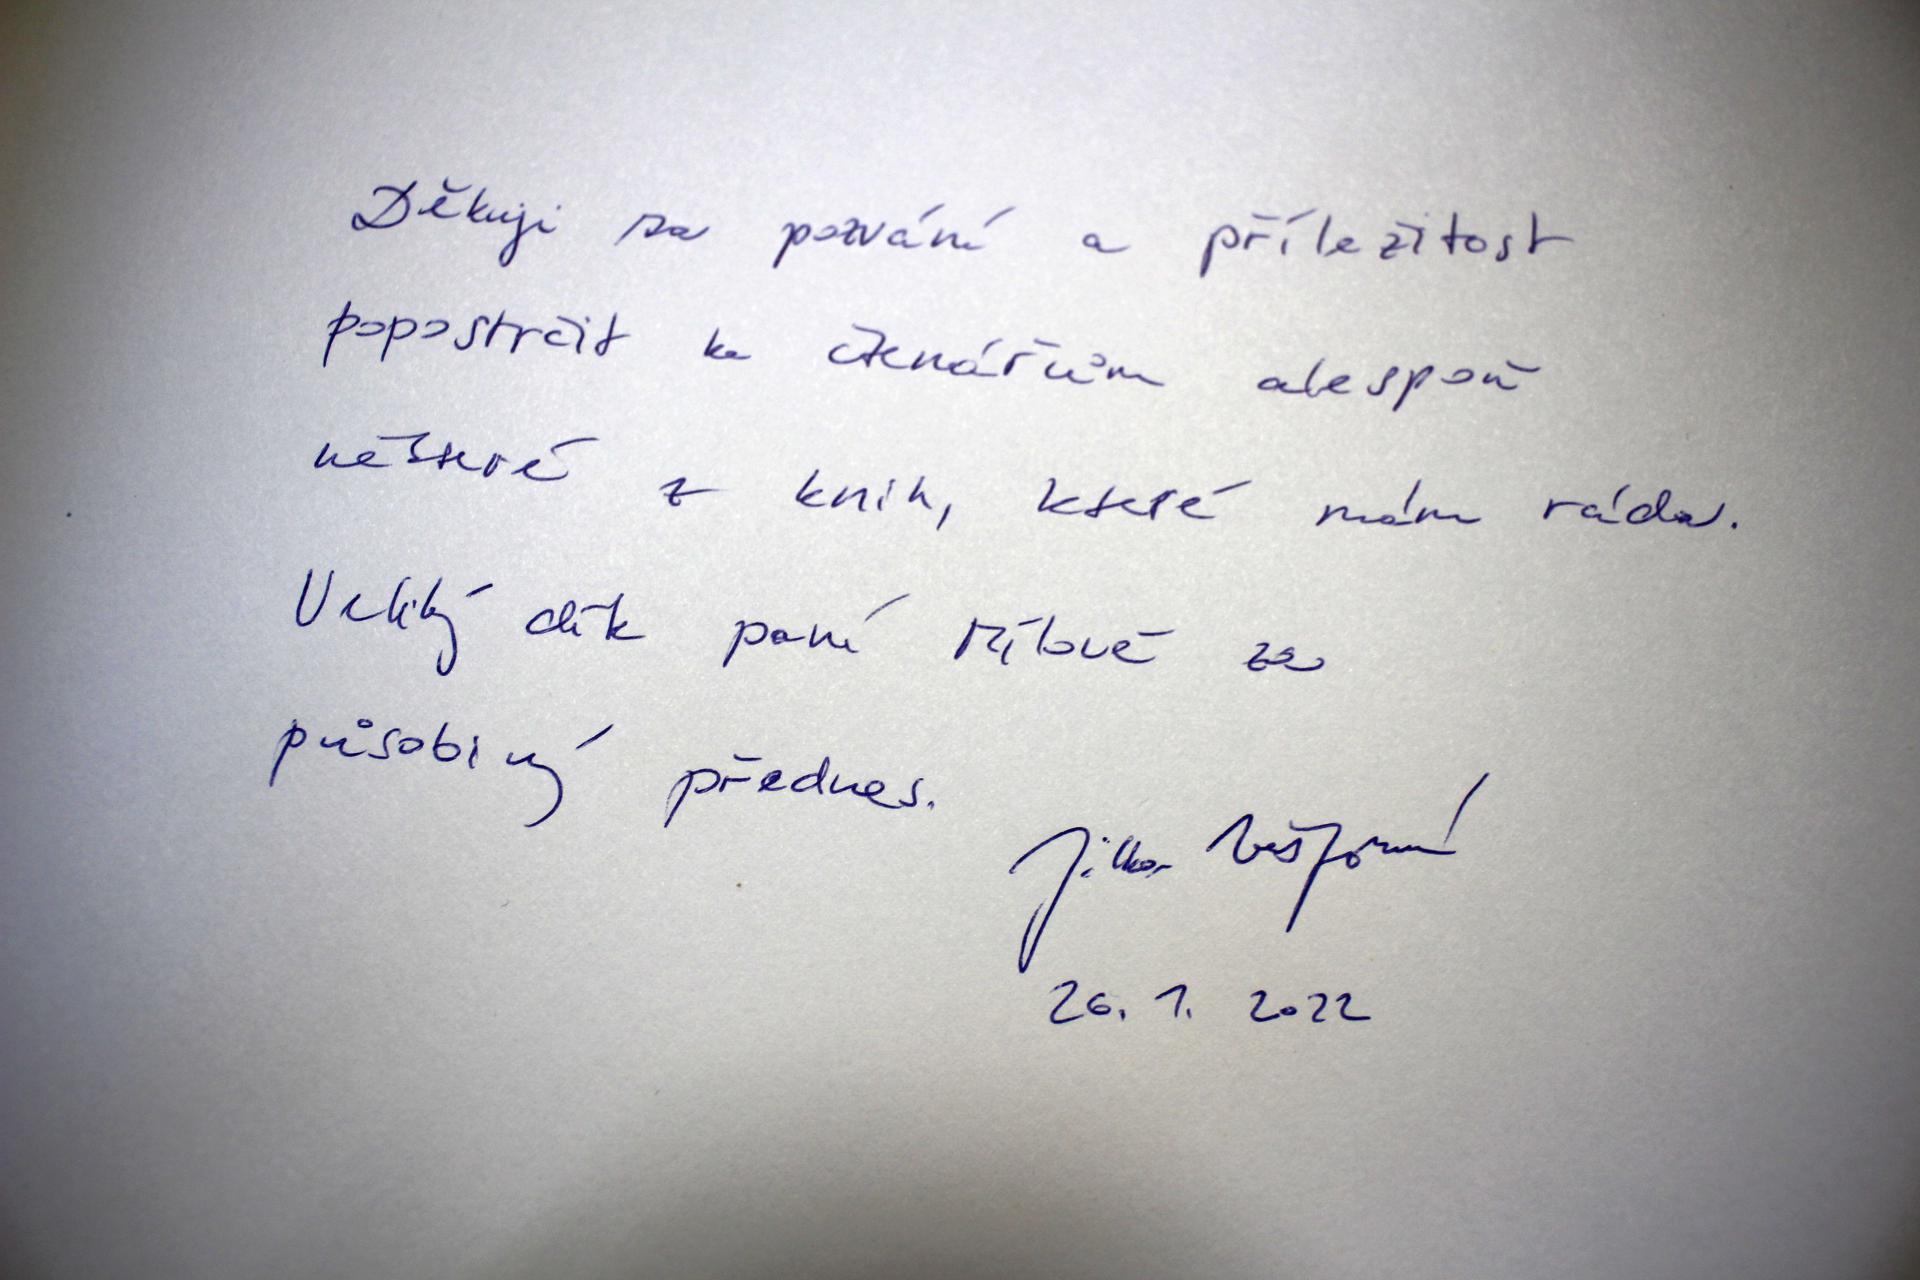 Děkuji za pozvání a příležitost
popostrčit ke čtenářům alespoň
některé z knih, které mám ráda.
Veliký dík paní Mílové za
působivý přednes.
Jitka
26. 1. 2022